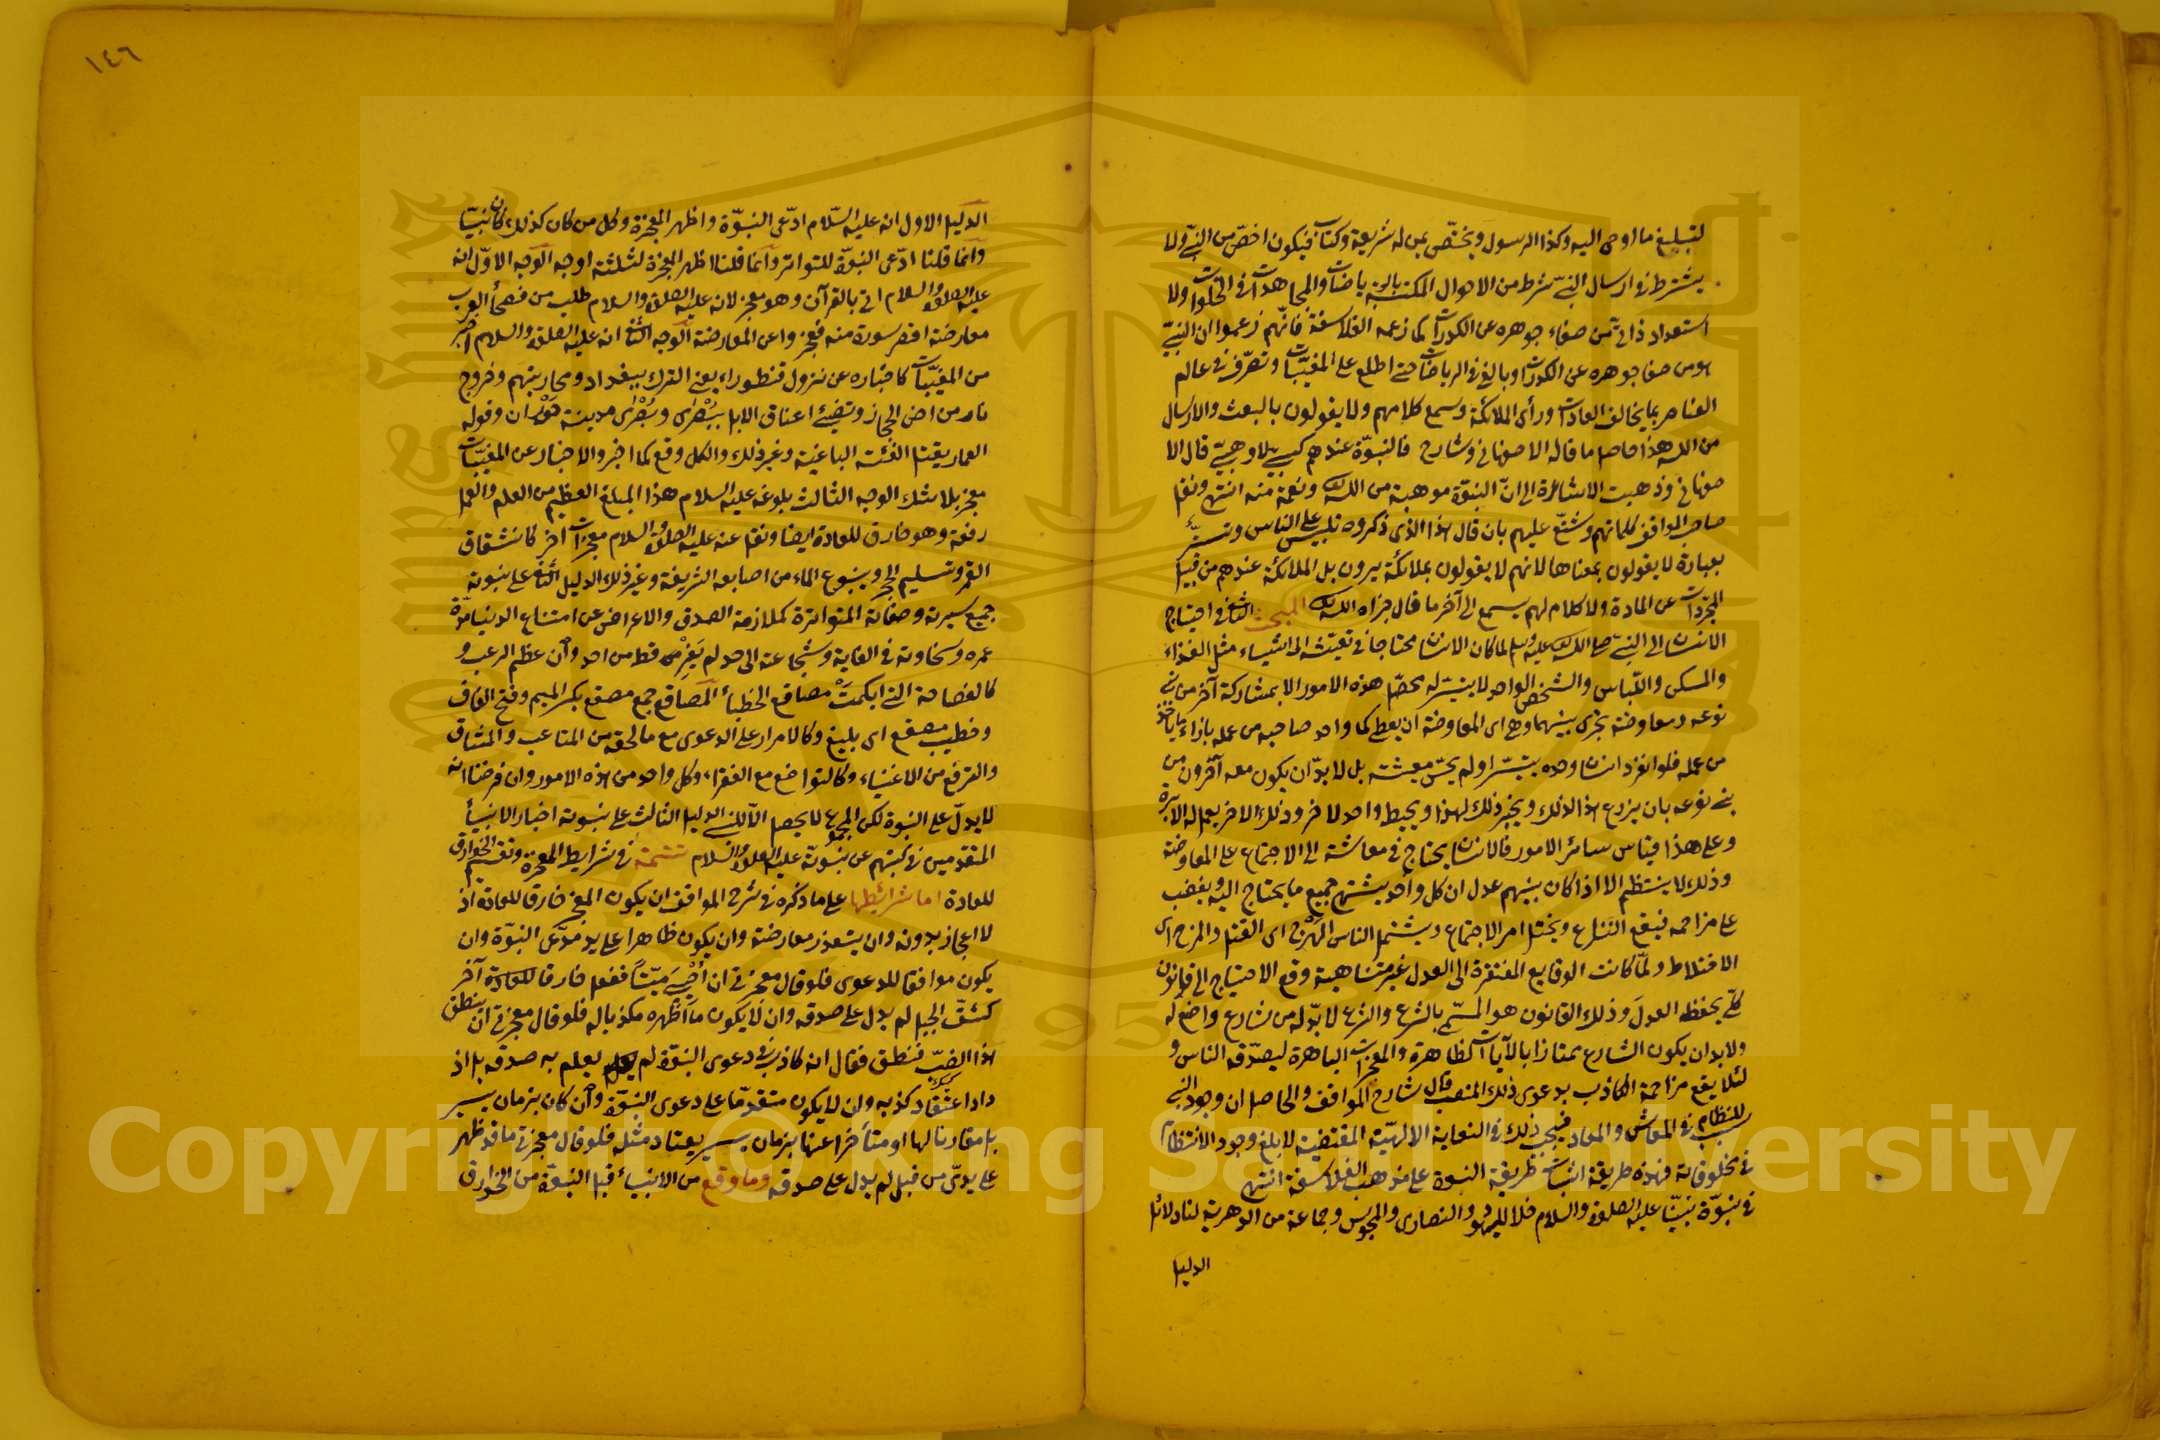 لتبليغ ما اوحى اليه وكذا الرسول ويختصّ بمن له شريعة وكتاب فيكون اخصّ من النبيّ ولا
يشترط في ارسال النبيّ شرط من الاحوال المكتسبة بالرياضات والمجاهدات في الخلوات ولا
استعداد ذاتيّ من صفاء جوهره عن الكدورات كما زعمه الفلاسفة فانّهم زعموا ان النبيّ
من صفا جوهره عن الكدورات وبالغ في الرياضات حتى اطلع على المغيّبات وتصرّف في عالم
العناصر بما يخالف العادات ورأى الملائكة وسمع كلامهم ولا يقولون بالبعث والارسال
من الله هذا حاصل ما قاله الاصفهاني وشارح فالنبوّة عندهم كسبيّ بلا وهبيّ قال الا
صفهاني وذهبت الاشاعرة الى انّ النبوّة موهبة من الله ونعمة منه انتهى ونقل
صاحب المواقف كلماتهم وشنّع عليهم بان قال هذا الذي ذكروه تلبيس على الناس وتستّر
بعبارة لا يقولون بمعناها لانهم لا يقولون بملائكة يرون بل الملائكة عندهم من قبيل
المجرّدات عن المادة ولا كلام لهم يسمع الى آخر ما قال جزاه الله المبحث الثاني في احتياج
الانسان الى النبيّ صلى الله عليه وسلم لما كان الانسان محتاجا في تعيّشه الى اشياء مثل الغذاء
والمسكن واللّباس والشخص الواحد لا يتيسّر له تحصيل هذه الامور الا بمشاركة آخر من بني
نوعه ومعاوضة يجري بينهما وهي اي المعاوضة ان يعطي كل واحد صاحبه من عمله بازاء ما يأخذ
من عمله فلو انفرد انسان وحده لم يحسّن معيشته بل لا بدّ ان يكون معه آخرون من
بني نوعه بان يزرع هذا لذلك ويخبز ذلك لهذا ويخيط واحد لآخر وذلك الآخر يعمل له الابرة
وعلى هذا قياس سائر الامور فالانسان يحتاج في معاشه الى الاجتماع على المعاوضة
وذلك لا ينتظم الا اذا كان بينهم عدل لان كل واحد يشتهي جميع ما يحتاج اليه ويغضب
على مزاحمه فيقع التنازع ويختل امر الاجتماع ويشتمل الناس الهرْج اي القتل والمرج اي
الاختلاط ولمّا كانت الوقايع المفتقرة الى العدل غير متناهية وقع الاحتياج الى قانون
كلّي يحفظ العدل وذلك القانون هو المسمّى بالشرع والشرع لا بدّ له من شارع واضع له
ولا بد ان يكون الشارع ممتازا بالآيات الظاهرة والمعجزات الباهرة ليصدّقه الناس و
لئلا يقع مزاحمة الكاذب بدعوى ذلك المنصب قال شارح المواقف والحاصل ان وجود النبي
سبب للنظام في المعاش والمعاد فيجب ذلك في العناية الالهيّة المقتضية لابلغ وجود الانتظام
في مخلوقاته فهذه طريقة اثبات النبوة على مذهب الفلاسفة انتهى
في نبوّة نبيّنا عليه الصلوة والسلام خلافا لليهود والنصارى والمجوس وجماعة من الدهرية لنا دلائل
الدليل
١٤٦
الدليل الاول انه عليه السّلام ادّعى النبوّة واظهر المعجزة وكل من كان كذلك كان نبيّا
وانما قلنا ادّعى النبوّة للتواتر وانما قلنا اظهر المعجزة لثلثة اوجه الوجه الاوّل انه
عليه الصلوة والسلام اتى بالقرآن وهو معجز لانه عليه الصلوة والسلام طلب من فصحاء العرب
معارضة اقصر سورة منه فعجزوا عن المعارضة الوجه الثاني انه عليه الصلوة والسلام اخبر
من المغيّبات كاخباره عن نزول قنطوراء يعني الترك ببغداد ومحاربتهم وخروج
نار من ارض الحجاز وتضيئ اعناق الابل ببُصْرى وبُصْرى مدينة حَوْران وقوله
لعمار يقتله الفئة الباغية وغير ذلك والكل وقع كما اخبر والاخبار عن المغيّبات
معجز بلا شك الوجه الثالث بلوغه عليه السلام هذا المبلغ العظيم من العلم والعمل
رفعة وهو خارق للعادة ايضا ونقل عنه عليه الصلوة والسلام معجزات اخر كانشقاق
القمر وتسليم الحجر وينبوع الماء من اصابعه الشريفة وغير ذلك الدليل الثاني على نبوته
جميع سيرته وصفاته المتواترة كملازمة الصدق والاعراض عن امتاع الدنيا مدّة
عمره وسخاوته في الغاية وشجاعته الى حد لم يَفِرّ قط من احد وان عظم الرعب و
كالفصاحة التي ابكمتْ مصاقع الخطباء المصاقع جمع مصقع بكسر الميم وفتح القاف
وخطيب مصقع اي بليغ وكالاصرار على الدعوى مع ما لحقه من المتاعب والمشاق
والترفع من الاغنياء وكالتواضع مع الفقراء وكل واحد من هذه الامور وان فرضنا انه
لا يدلّ على النبوة لكن المجموع لا يحصل الّا للنبي الدليل الثالث على نبوته اخبار الانبياء
المتقدمين في كتبهم عن نبوته عليه الصلوة والسلام تتمة في شرايط المعجزة وتقسيم الخوارق
للعادة اما شرائطها على ما ذكره في شرح المواقف ان يكون المعجز خارقا للعادة اذ
لا اعجاز بدونه وان يتعذر معارضته وان يكون ظاهرا على يد مدّعى النبوّة وان
يكون موافقا للدعوى فلو قال معجزتي ان أُحْيِيَ ميّتا ففعل خارقا للعادة آخر
كنتق الجبل لم يدل على صدقه وان لا يكون ما اظهره مكذبا له فلو قال معجزتي ان ينطق
هذا الضبّ فنطق فقال انه كاذب في دعوى النبوّة لم يعلم به صدقه بل اذ
داد اعتقاد كذبه وان لا يكون متقدّما على دعوى النبوّة وان كان بزمان يسير
بل مقارنا لها او متأخرا عنها بزمان يسير يعتاد مثله فلو قال معجزتي ما قد ظهر
على يديّ من قبل لم يدل على صدقه وما وقع من الانبياء قبل النبوّة من الخوارق
Copyright © King Saud University